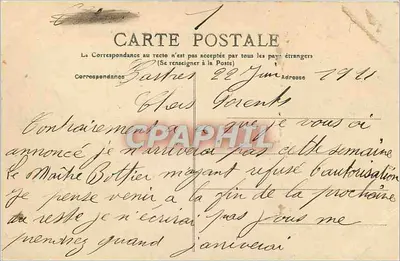 1
CARTE POSTALE
La Correspondance au recto n'est pas acceptée par tous les pays étrangers
(Se renseigner à la Poste)
Correspondance Castres 22 Juin Adresse 1911
Chers Parents
Contrairement a que je vous ai
CPAPHIL
annoncé je n'arriverai pas cette semaine
le Maitre Bottier m'ayant refusé l'autorisation
Je pense venir a la fin de la prochaine
au reste je n'écrirai pas vous me
prendrez quand j'arriverai